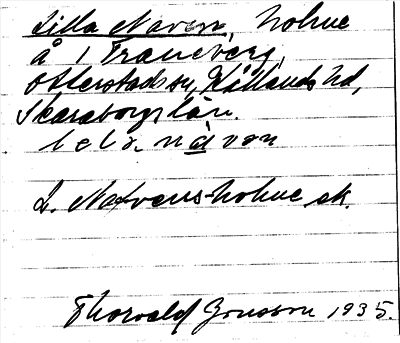 Lilla Naven, holme
å i Traneberg,
Otterstads sn, Kållands hd,
Skaraborgs län.
lela nàvən
L. Nafvens-holme ek.
Thorvald Jonsson 1935.